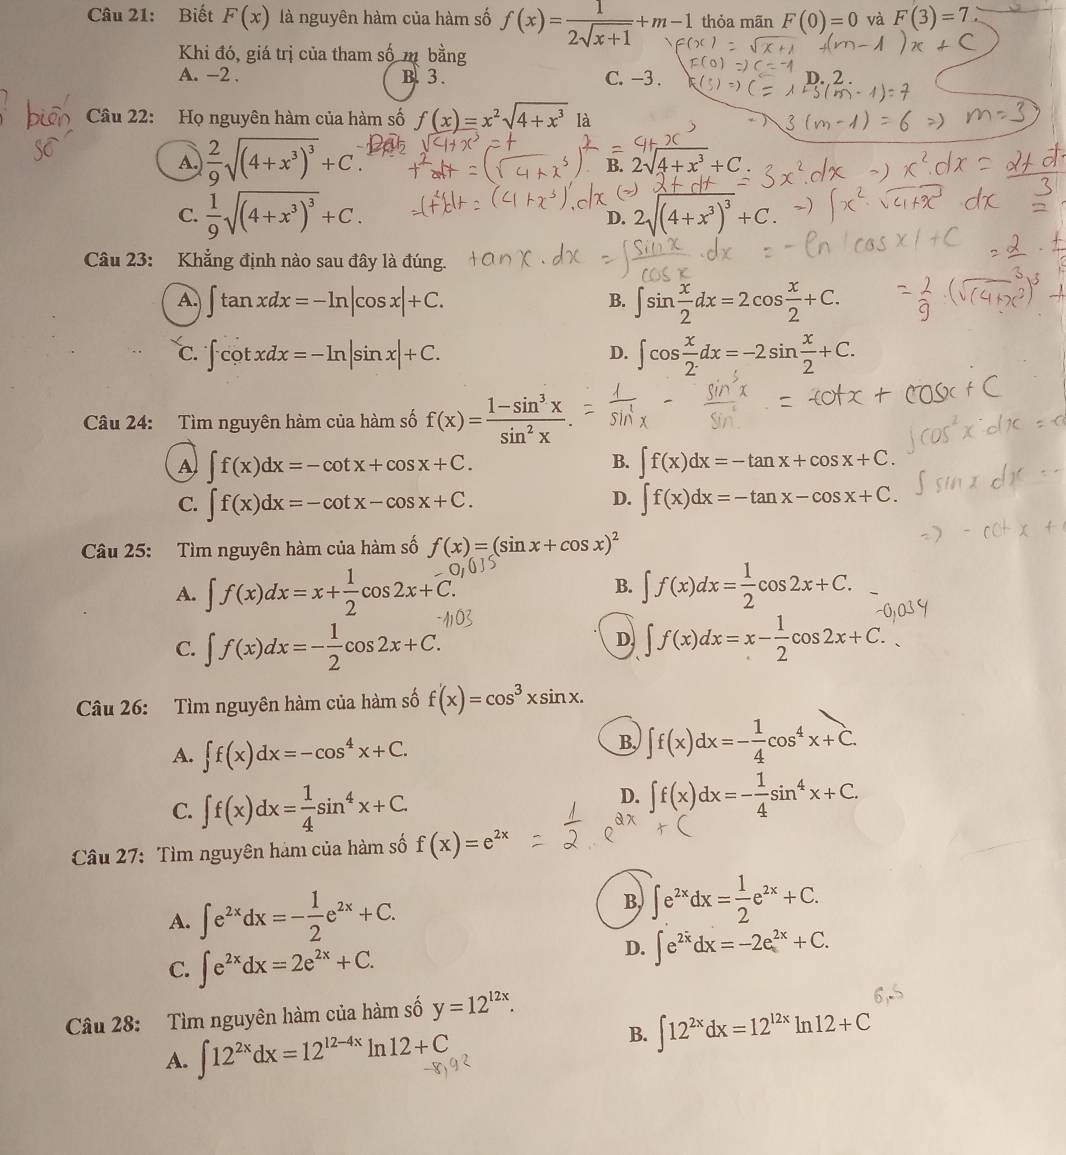 Câu 21: Biết F(x) là nguyên hàm của hàm số f(x) = 1/(2√(x+1)) + m − 1 thỏa mãn F(0) = 0 và F(3) = 7.
F(x) = √(x+1) + (m−1)x + C
Khi đó, giá trị của tham số m bằng
F(0) => C = −1
A. −2. B. 3. C. −3. D. 2.
F(3) => C = 1 + 3(m−1) = 7
=> 3(m−1) = 6 => m = 3
biến số
Câu 22: Họ nguyên hàm của hàm số f(x) = x²√(4+x³) là
Đặt √(4+x³) = t
t² = (√(4+x³))² = 4+x³
A. 2/9 √((4+x³)³) + C. B. 2√(4+x³) + C.
(t²)'dt = (4+x³)'.dx (=) 2t dt = 3x².dx => x².dx = 2t dt/3
C. 1/9 √((4+x³)³) + C. D. 2√((4+x³)³) + C.
=> ∫x².√(4+x³) dx =
Câu 23: Khẳng định nào sau đây là đúng.
tan x.dx = ∫ sin x/cos x .dx = −ln|cos x| + C
= 2/9 .(√(4+x³))³ +
A. ∫tan xdx = −ln|cos x| + C. B. ∫sin x/2 dx = 2cos x/2 + C.
C. ∫cot xdx = −ln|sin x| + C. D. ∫cos x/2 dx = −2sin x/2 + C.
Câu 24: Tìm nguyên hàm của hàm số f(x) = (1−sin³x)/(sin²x).
= 1/sin²x − sin³x/sin = −cotx + cosx + C
∫cos²x.dx =
A. ∫f(x)dx = −cot x + cos x + C. B. ∫f(x)dx = −tan x + cos x + C.
∫sin x dx
C. ∫f(x)dx = −cot x − cos x + C. D. ∫f(x)dx = −tan x − cos x + C.
=> −cot x +
Câu 25: Tìm nguyên hàm của hàm số f(x) = (sin x + cos x)²
−0,035
A. ∫f(x)dx = x + 1/2 cos 2x + C. B. ∫f(x)dx = 1/2 cos 2x + C.
−1,03 −0,034
C. ∫f(x)dx = −1/2 cos 2x + C. D. ∫f(x)dx = x − 1/2 cos 2x + C.
Câu 26: Tìm nguyên hàm của hàm số f(x) = cos³ x sin x.
A. ∫f(x)dx = −cos⁴ x + C. B. ∫f(x)dx = −1/4 cos⁴ x + C.
C. ∫f(x)dx = 1/4 sin⁴ x + C. D. ∫f(x)dx = −1/4 sin⁴ x + C.
Câu 27: Tìm nguyên hàm của hàm số f(x) = e²ˣ = 1/2 . e²ˣ + C
A. ∫e²ˣdx = −1/2 e²ˣ + C. B. ∫e²ˣdx = 1/2 e²ˣ + C.
C. ∫e²ˣdx = 2e²ˣ + C. D. ∫e²ˣdx = −2e²ˣ + C.
Câu 28: Tìm nguyên hàm của hàm số y = 12¹²ˣ.
6,5
A. ∫12²ˣdx = 12¹²⁻⁴ˣ ln12 + C B. ∫12²ˣdx = 12¹²ˣ ln12 + C
−8,92